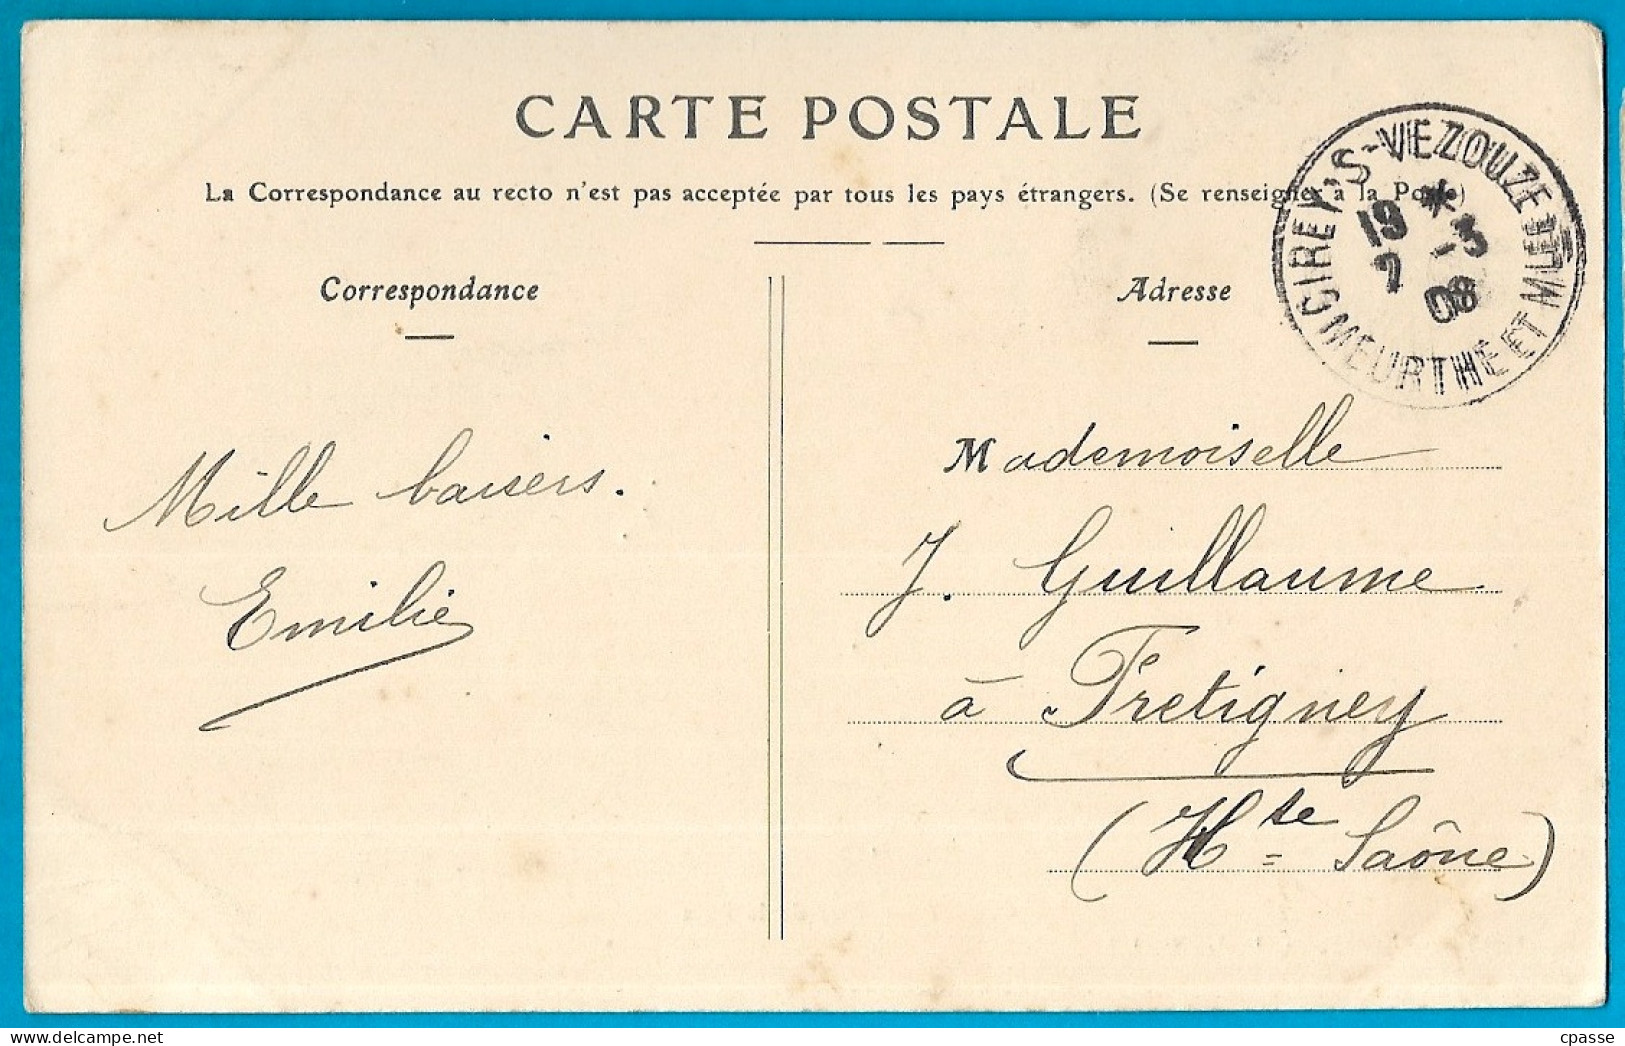 CARTE POSTALE
La Correspondance au recto n'est pas acceptée par tous les pays étrangers. (Se renseigner à la Poste)
Correspondance
Adresse
CIREY-S-VEZOUZE
MEURTHE ET MLLE
*
19 -3
7 08
Mille baisers.
Emilie
Mademoiselle
J. Guillaume
à Fretigney
(Hte Saône)
cpasse
https://www.delcampe.net